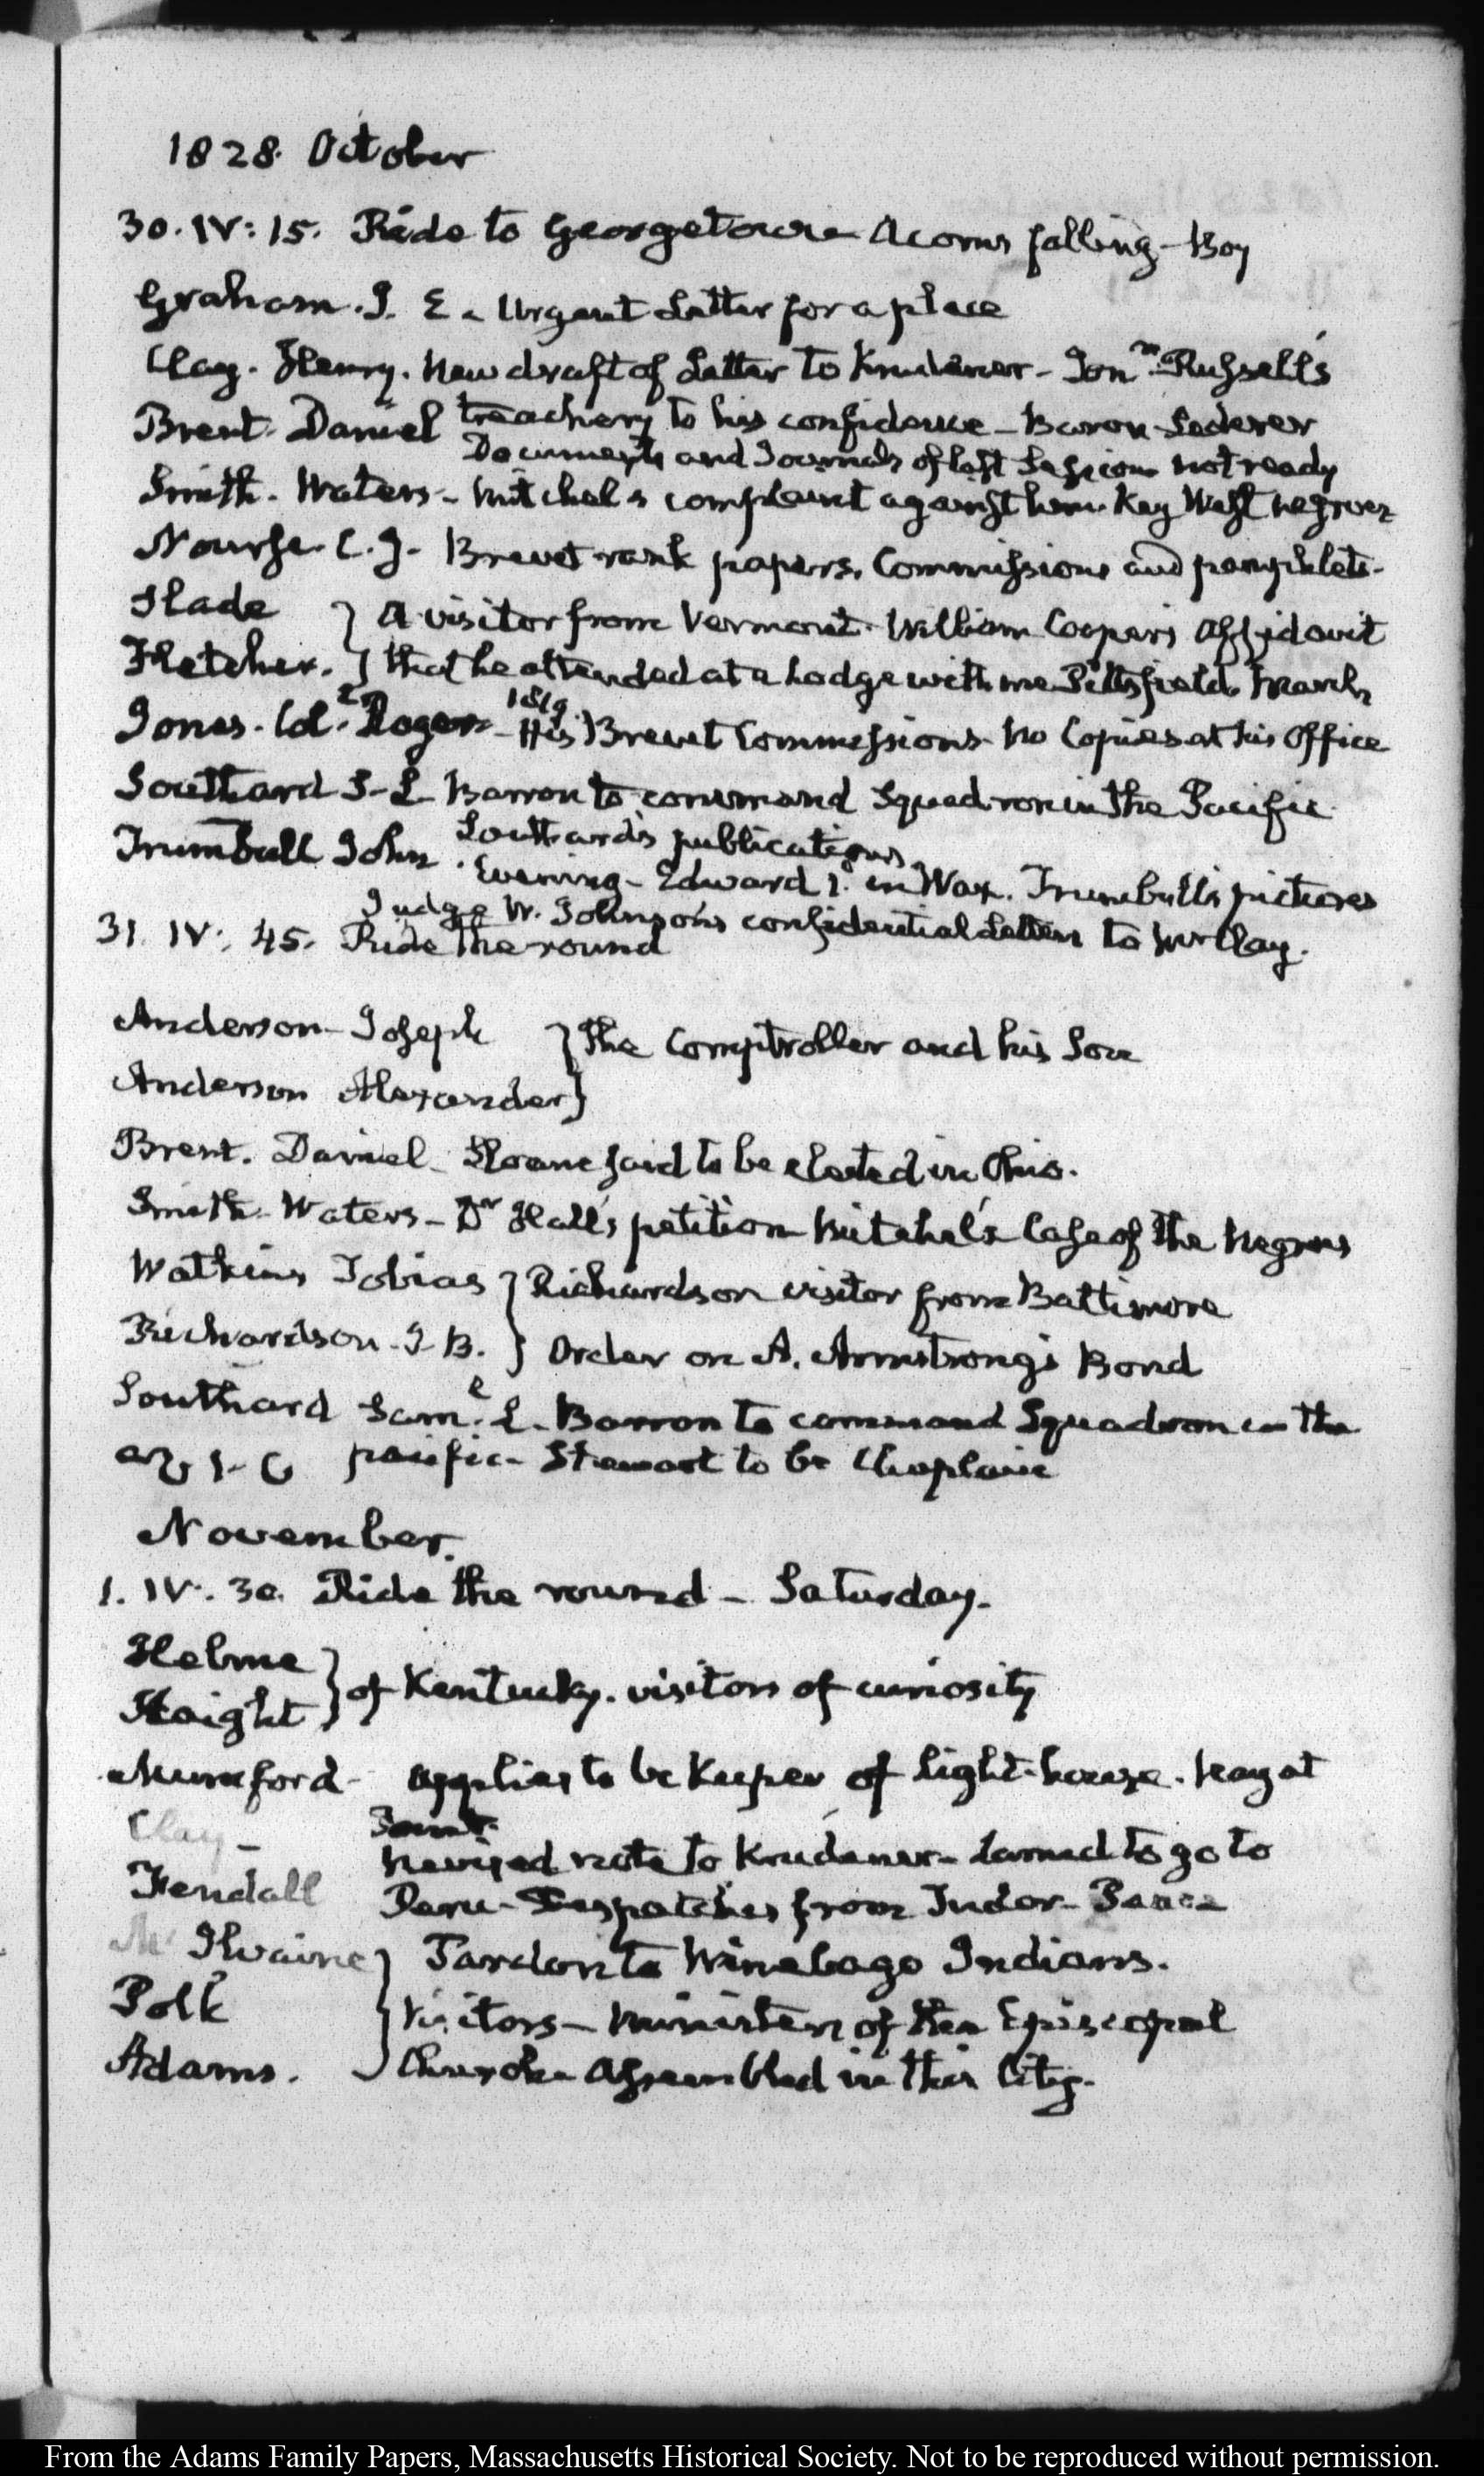 1828. October
30. IV: 15. Ride to Georgetown Acorns falling - Boy
Graham. J. E. Urgent Letter for a place
Clay. Henry. New draft of Letter to Krudener - Jon.n Russell's
treachery to his confidence - Baron Lederer
Brent. Daniel
Documents and Journals of last Session not ready
Smith. Waters - Mitchel's complaint against him. Key West negroes
Nourse. C. J. Brevet rank papers, Commissions and pamphlets.
Slade } A visitor from Vermont. William Cooper's affidavit
Fletcher. } that he attended at a Lodge with me Pittsfield March
1819.
Jones. Col. Roger - His Brevet Commissions No Copies at his Office
Southard S. L Barron to command Squadron in the Pacific
Southard's publications
Trumbull John. Evening - Edward in Wax. Trumbull's pictures
Judge W. Johnson's confidential Letters to Mr Clay.
31. IV: 45. Ride the round
Anderson - Joseph } The Comptroller and his Son
Anderson Alexander }
Brent. Daniel - Sloane said to be elected in Ohio.
Smith. Waters - Dr Hall's petition Mitchel's Case of the Negroes
Watkins Tobias } Richardson visitor from Baltimore
Richardson. J. B. } Order on A. Armstrong's Bond
Southard Sam.l L. Barron to command Squadron in the
pacific - Stewart to be Chaplain
November.
1. IV. 30. Ride the round - Saturday.
Helme } of Kentucky. visitors of curiosity
Haight }
Mumford - applies to be Keeper of light-house.
Clay -
Revised note to Krudener - Larned to go to
Kendall Peru - Despatches from Tudor -
Mc Ilvaine } Pardon to Winebago Indians.
Polk } Visitors - Ministers of the Episcopal
Adams. } Church assembled in this City.
From the Adams Family Papers, Massachusetts Historical Society. Not to be reproduced without permission.